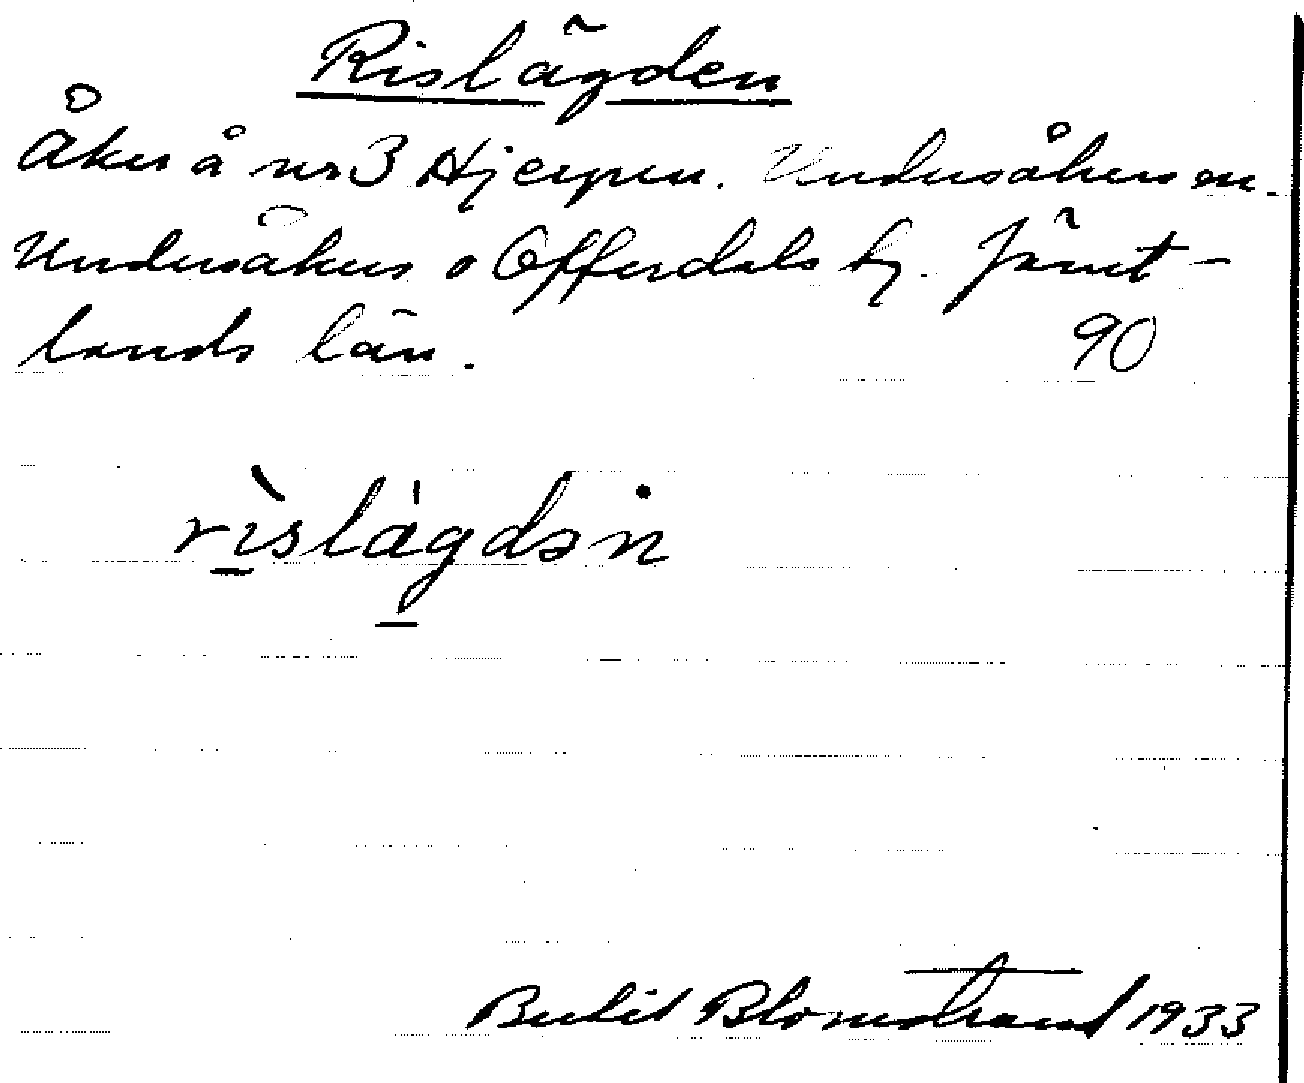 Rislägden
Åker å nr 3 Hjerpen. Undersåkers sn.
Undersåkers o Offerdals tg. Jämt-
lands län. 90
rìslàgdəṅ
Blomstrand 1933